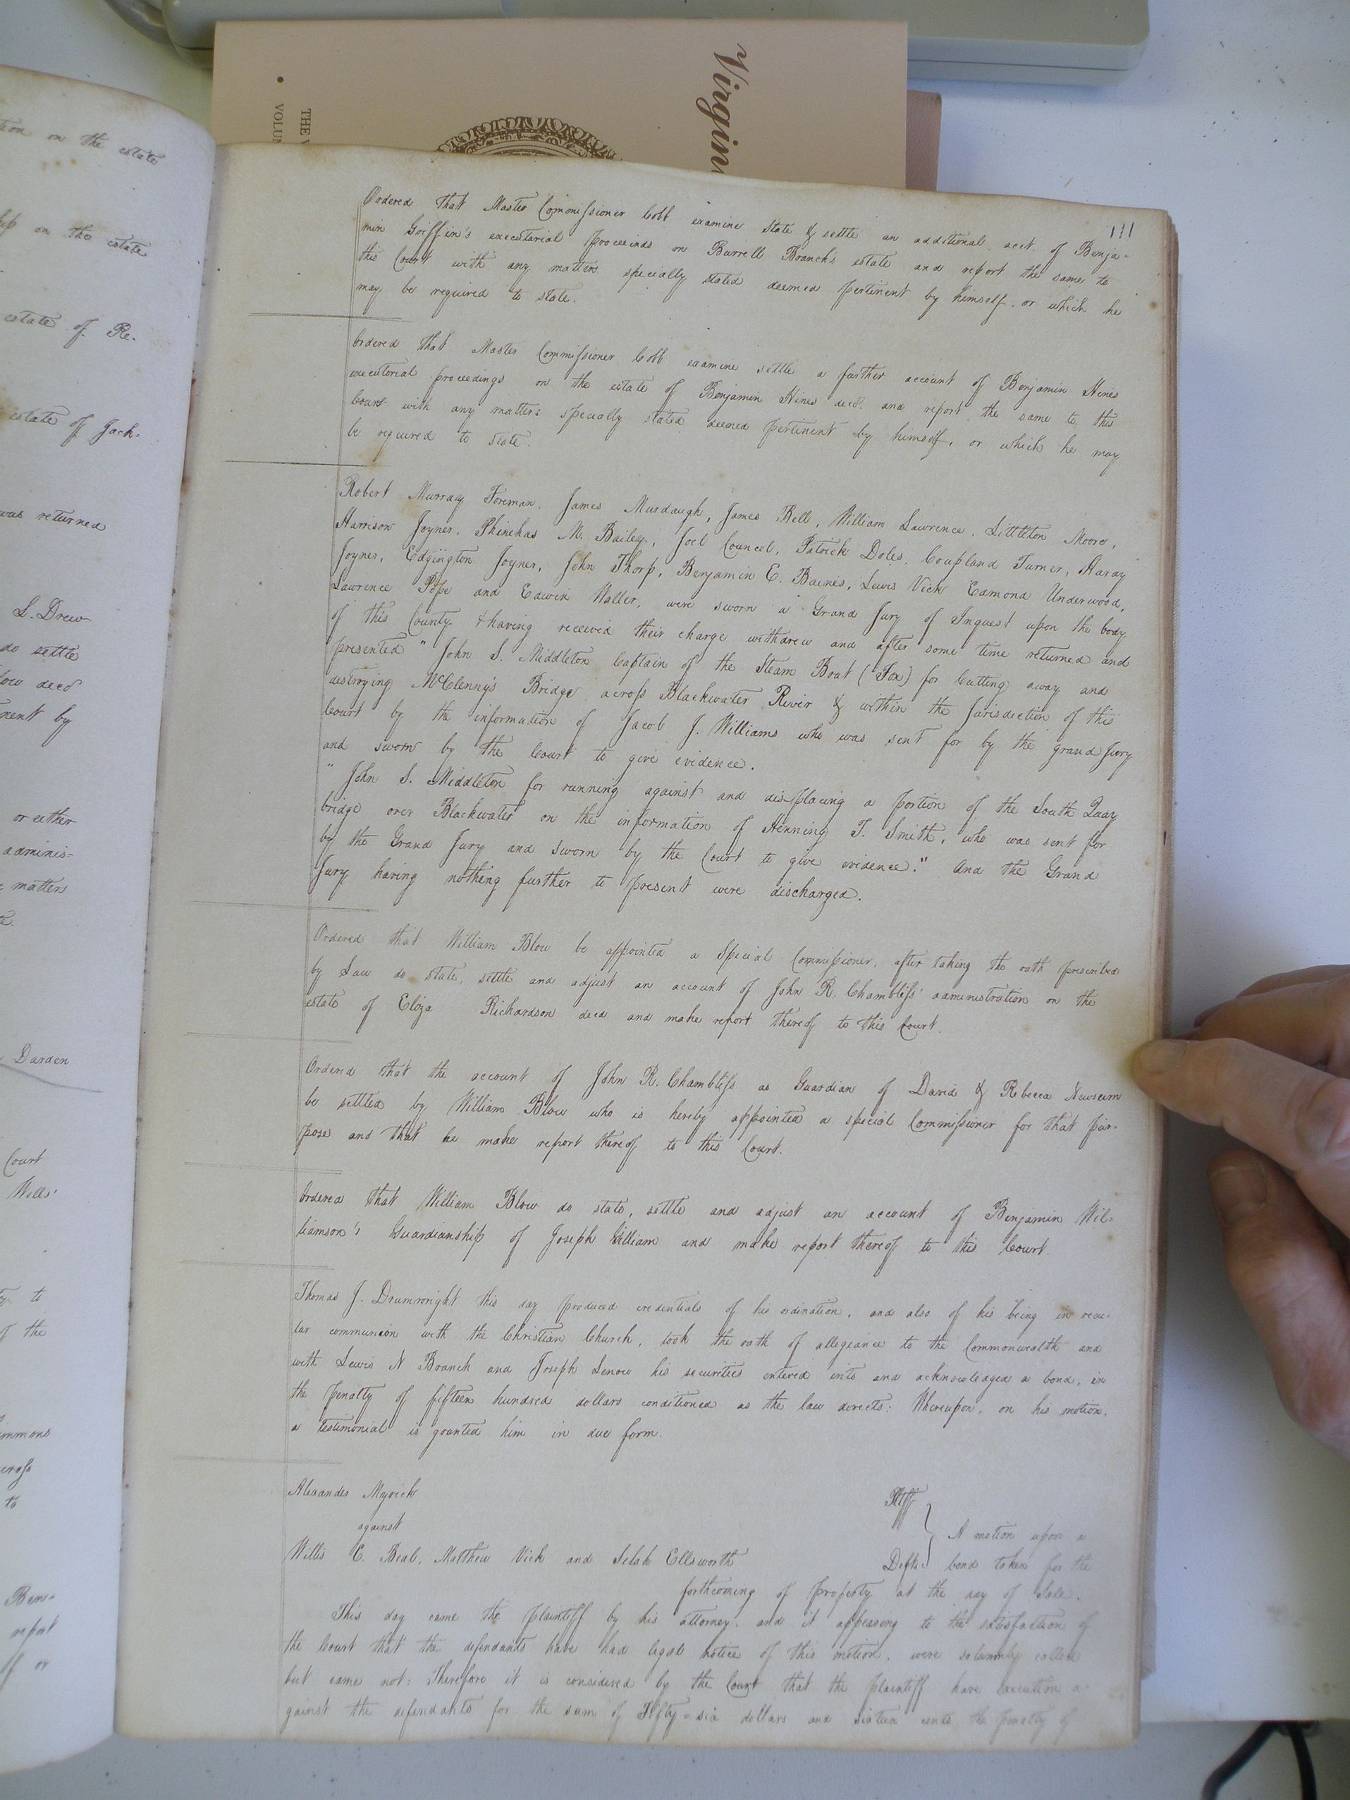 Virgin
THE V
VOLUM
tion on the estate
hip on the estate
estate of Re-
estate of Jack-
was returned
S. Drew
do settle
low decd
nent by
or either
adminis-
matters
Darden
Court
Wills'
to
of the
mmons
to
Benj-
report
f or
111
Ordered that Master Commissioner Cobb examine state & settle an additional acct of Benja-
min Griffin's executorial proceeinds on Burrell Branch's estate and report the same to
this Court with any matters specially stated deemed pertinent by himself, or which he
may be required to state.
Ordered that Master Commissioner Cobb examine settle a further account of Benjamin Hines
executorial proceedings on the estate of Benjamin Hines decd. and report the same to this
Court with any matters specially stated deemed pertinent by himself, or which he may
be required to state.
Robert Murray Foreman, James Murdaugh, James Bell, William Lawrence, Littleton Moore,
Harrison Joyner, Phinehas M. Bailey, Joel Council, Patrick Doles, Coupland Turner, Hardy
Joyner, Edgington Joyner, John Thorp, Benjamin E. Baines, Lewis Vick Edmond Underwood,
Lawrence Pope and Edwin Waller, were sworn a Grand Jury of Inquest upon the body
of this County & having received their charge withdrew and after some time returned and
presented "John S. Middleton Captain of the Steam Boat (Fox) for Cutting away and
destroying McClenny's Bridge across Blackwater River & within the jurisdiction of this
Court by the information of Jacob J. Williams who was sent for by the grand Jury
and sworn by the Court to give evidence.
"John S. Middleton for running against and displacing a portion of the South Quay
bridge over Blackwater on the information of Henning T. Smith, who was sent for
by the Grand Jury and sworn by the Court to give evidence." And the Grand
Jury having nothing further to present were discharged.
Ordered that William Blow be appointed a Special Commissioner, after taking the oath prescribed
by Law do state, settle and adjust an account of John R. Chambliss' administration on the
estate of Eliza Richardson decd and make report thereof to this Court.
Ordered that the account of John R. Chambliss as Guardian of David & Rebecca Newsum
be settled by William Blow who is hereby appointed a special Commissioner for that pur-
pose and that he make report thereof to this Court.
Ordered that William Blow do state, settle and adjust an account of Benjamin Wil-
liamson's Guardianship of Joseph William and make report thereof to this Court.
Thomas J. Drumwright this day produced credentials of his ordination, and also of his being in regu-
lar communion with the Christian Church, took the oath of allegiance to the Commonwealth and
with Lewis N Branch and Joseph Lenow his securities entered into and acknowledged a bond, in
the penalty of fifteen hundred dollars conditioned as the law directs: Whereupon, on his motion,
a testimonial is granted him in due form.
Alexander Myrick Pltff
against } A motion upon a
Willis C. Beal, Matthew Vick and Selah Ellsworth Defts. bond taken for the
forthcoming of property at the day of Sale.
This day came the plaintiff by his attorney, and it appearing to the satisfaction of
the Court that the defendants have had legal notice of this motion, were solemnly called
but came not: Therefore it is considered by the Court that the plaintiff have execution a-
gainst the defendants for the sum of Fifty-six dollars and sixteen cents the penalty of